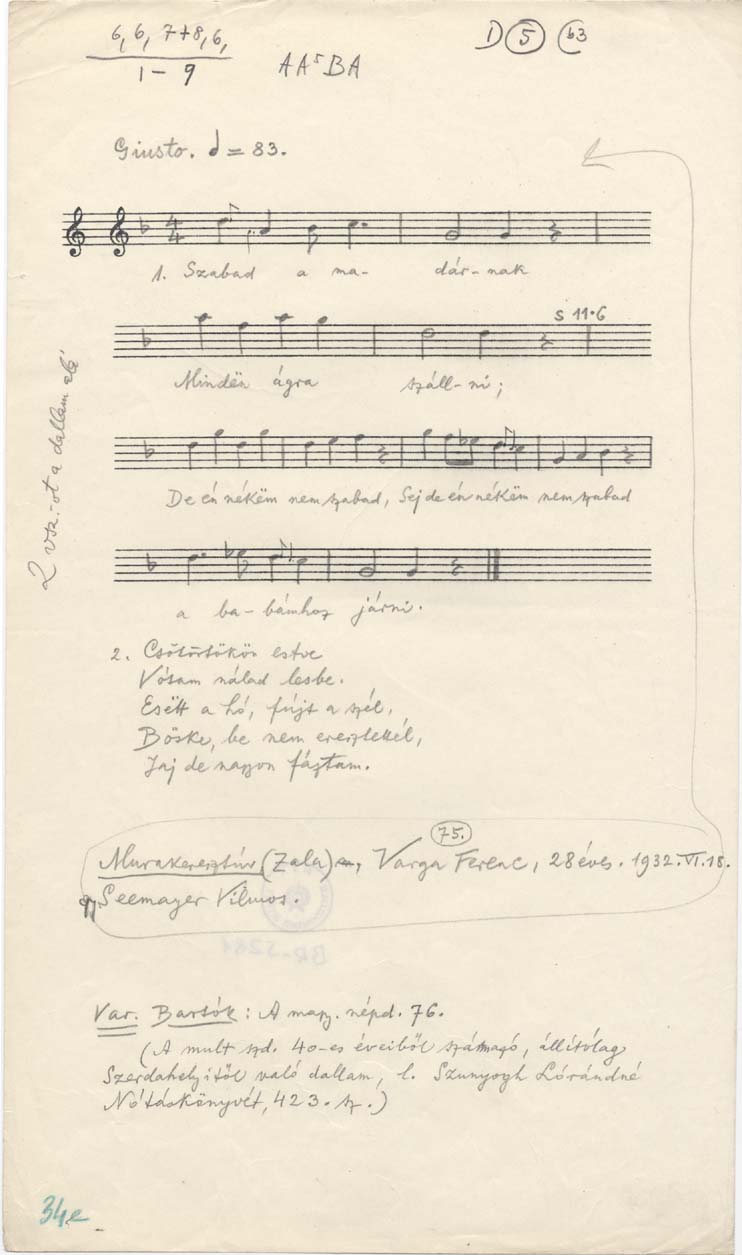 6, 6, 7+8, 6,
1 - 9
AA⁵BA
D 5 b3
Giusto. 𝅗𝅥 = 83.
4
4
1. Szabad a ma- dár-nak
S 11·6
Mindën ágra száll-ni;
De én nékëm nem szabad, Sej de én nékëm nem szabad
a ba-bámhoz járni.
2 vsz.-ot a dallam alá
2. Csötörtökön estve
Vótam nálad lesbe.
Esëtt a hó, fújt a szél,
Böske, be nem eresztettél,
Jaj de nagyon fáztam.
75.
Murakeresztúr (Zala), Varga Ferenc, 28 éves. 1932. VI. 18.
gy. Seemayer Vilmos.
BR-5281
Var. Bartók: A magy. népd. 76.
(A mult szd. 40-es éveiből származó, állítólag
Szerdahelyitől való dallam, l. Szunyogh Lórándné
Nótáskönyvét, 423. sz.)
34e